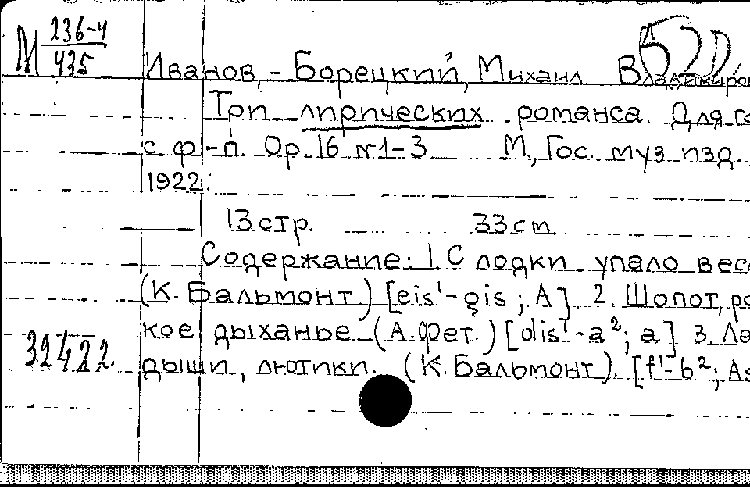 М 236-4
435
Иванов-Борецкий, Михаил Владимиро
520
Три лирических романса. Для го
с ф-п. Ор. 16 №1-3 М, Гос. муз изд.
1922.
13 стр. 33 cm
Содержание: 1. С лодки упало вес
(К. Бальмонт) [eis¹-gis²; A] 2. Шопот, ро
кое дыханье (А. Фет.) [dis¹-a²; a] 3. Ла
32422 дыши, лютики (К. Бальмонт) [f¹-b²; As